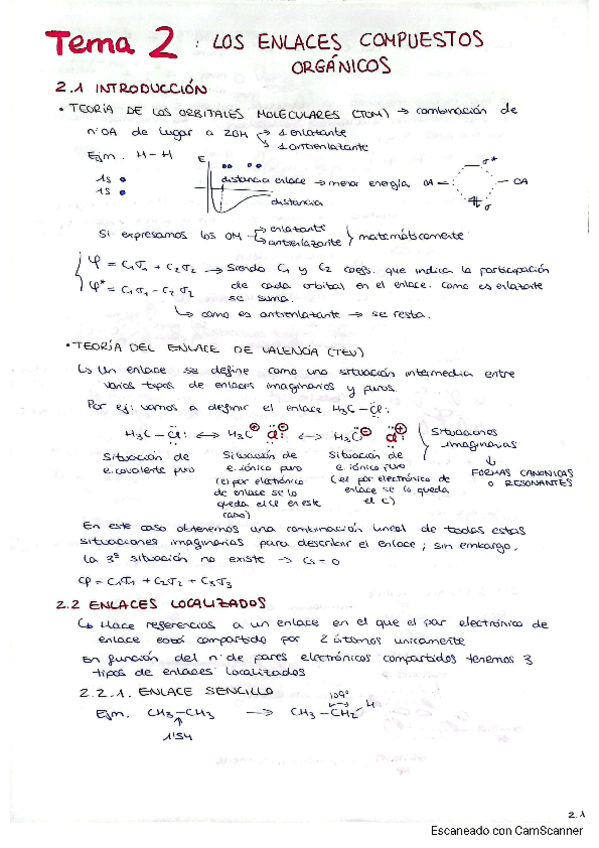 Tema 2 : LOS ENLACES COMPUESTOS
ORGÁNICOS
2.1 INTRODUCCIÓN
• TEORÍA DE LOS ORBITALES MOLECULARES (TOM) → combinación de
nº OA da lugar a 2OM → 1 enlazante
→ 1 antienlazante
Ejm. H-H
E
1s
1s
distancia enlace → menor energía
distancia
OA
σ*
OA
σ
Si expresamos los OM → enlazante
→ antienlazante } matemáticamente
φ = C₁σ₁ + C₂σ₂ → Siendo C₁ y C₂ coefs. que indica la participación
φ* = C₁σ₁ - C₂σ₂ de cada orbital en el enlace. Como es enlazante
se suma.
↳ como es antienlazante → se resta.
• TEORÍA DEL ENLACE DE VALENCIA (TEV)
↳ Un enlace se define como una situación intermedia entre
varios tipos de enlaces imaginarios y puros.
Por ej: vamos a definir el enlace H₃C-Cl:
H₃C-Cl: ↔ H₃C⊕ Cl:⊖ ↔ H₃C:⊖ Cl⊕
Situaciones
imaginarias
↓
FORMAS CANONICAS
O RESONANTES
Situación de
e. covalente puro
Situación de
e. iónico puro
(el par electrónico
de enlace se lo
queda el Cl en este
caso)
Situación de
e. iónico puro
(el par electrónico de
enlace se lo queda
el C)
En este caso obtenemos una combinación lineal de todas estas
situaciones imaginarias para describir el enlace; sin embargo,
la 3ª situación no existe → C₃ = 0
φ = C₁σ₁ + C₂σ₂ + C₃σ₃
2.2 ENLACES LOCALIZADOS
↳ Hace referencias a un enlace en el que el par electrónico de
enlace está compartido por 2 átomos unicamente
En función del nº de pares electrónicos compartidos tenemos 3
tipos de enlaces localizados
2.2.1. ENLACE SENCILLO
Ejm. CH₃-CH₃ → CH₃-CH₂-H
109°
1'54
2.1
Escaneado con CamScanner